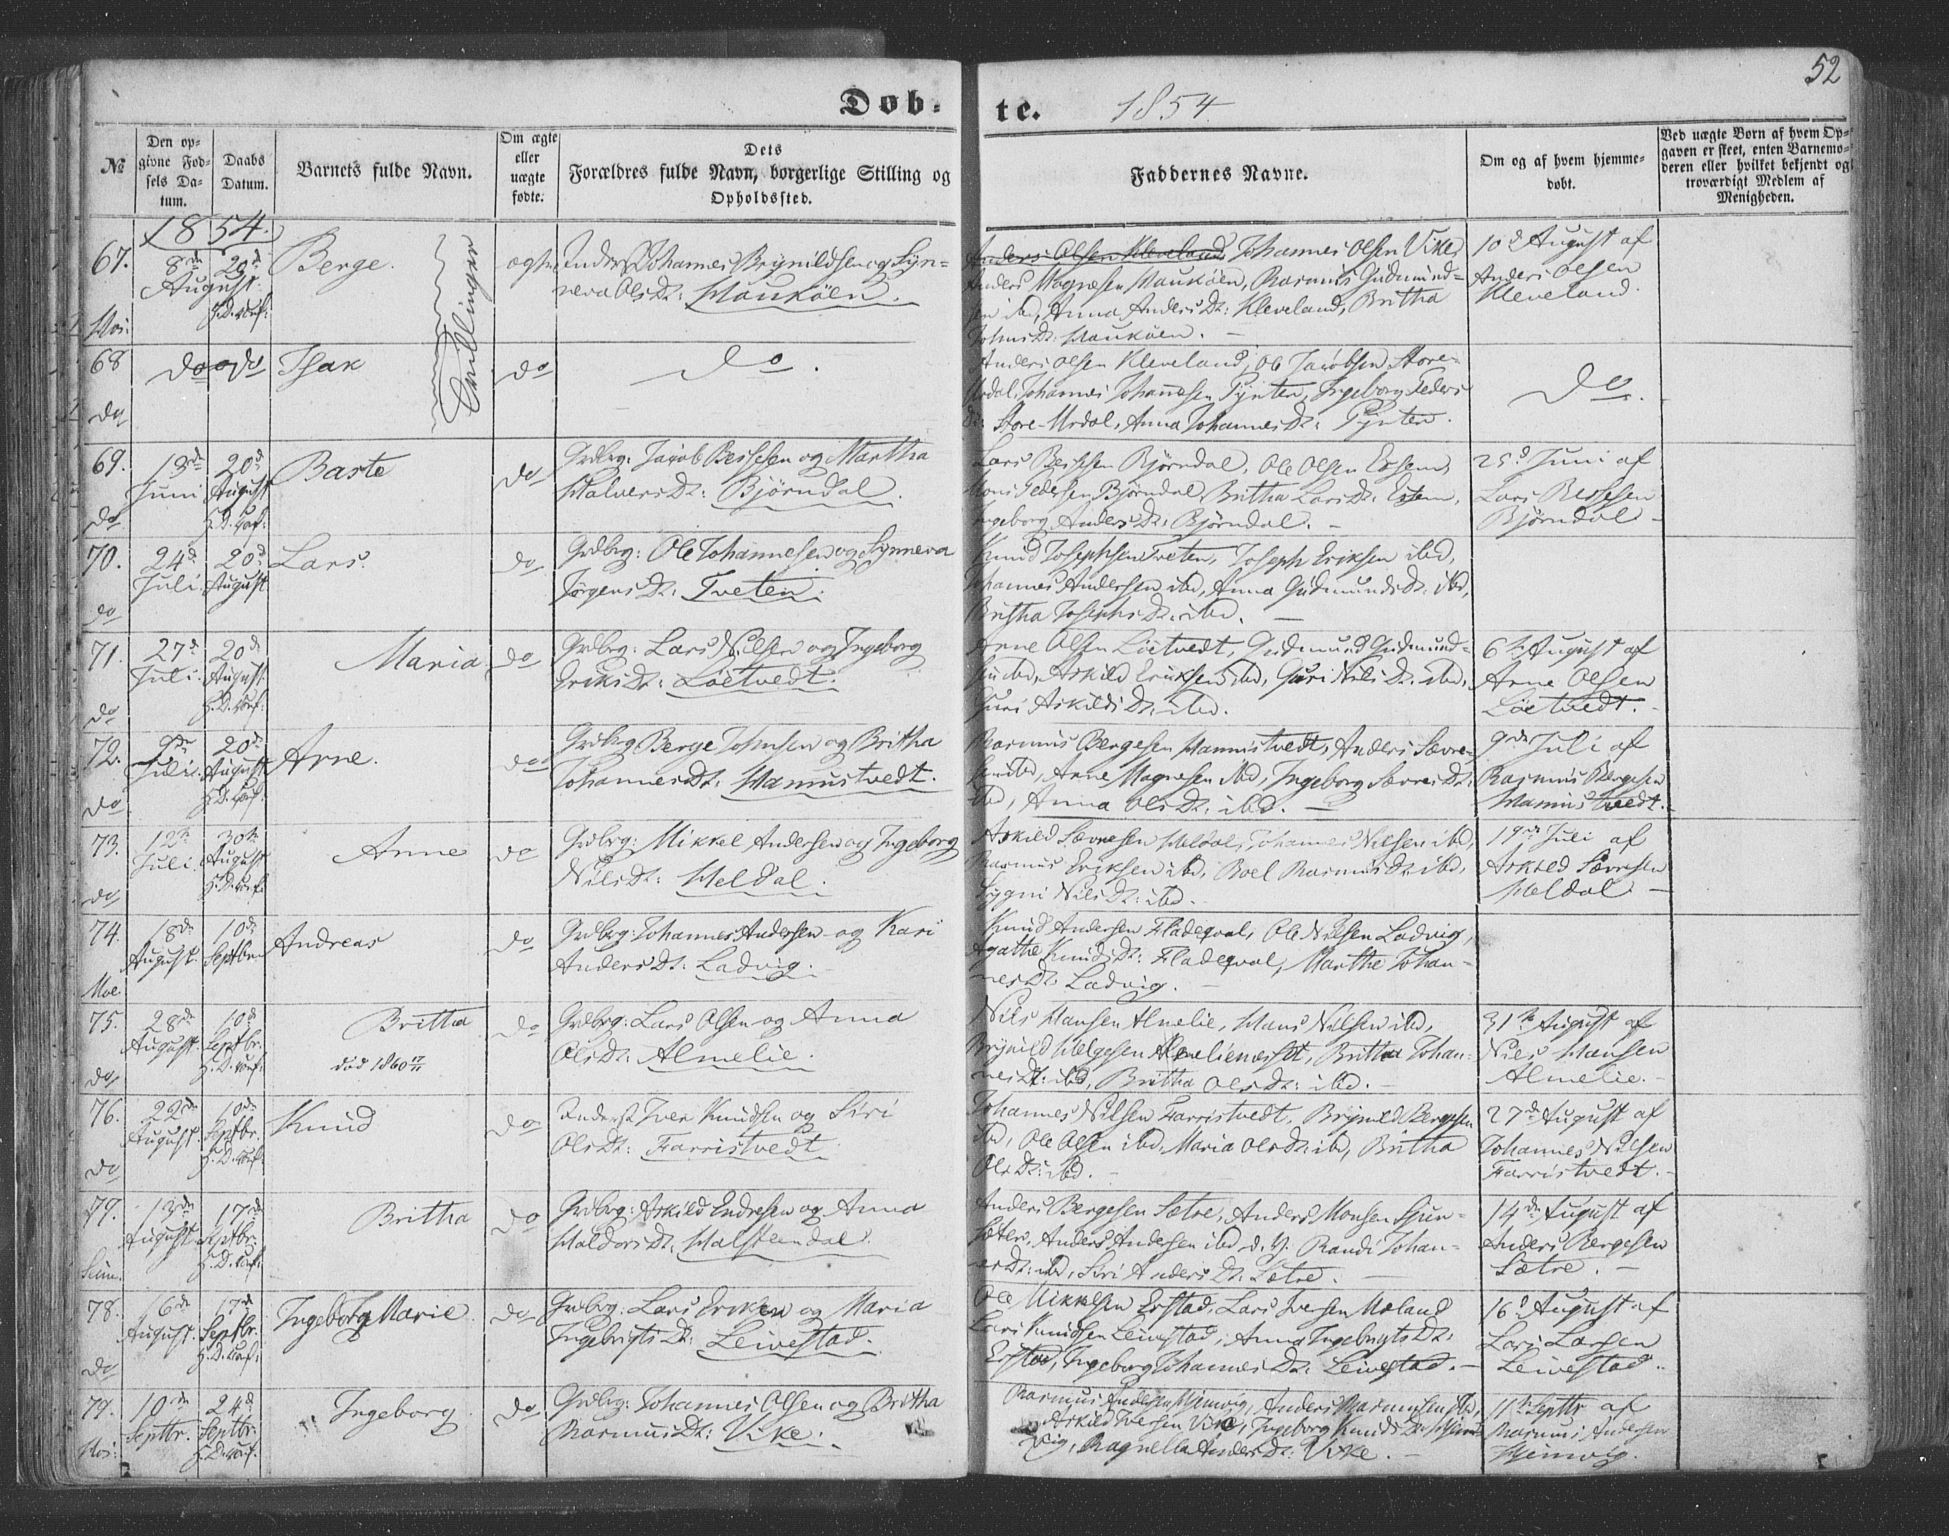 52
Døb-te. 1854.
№
Den opgivne Fødsels Datum.
Daabs Datum.
Barnets fulde Navn.
Om ægte eller uægte fødte.
Dets Forældres fulde Navn, borgerlige Stilling og Opholdssted.
Faddernes Navne.
Om og af hvem hjemmedøbt.
Ved uægte Børn af hvem Opgaven er skeet, enten Barnemoderen eller hvilket bekjendt og troværdigt Medlem af Menigheden.
1854.
67.
8de August
20d
H.D.conf:
Berge.
Tvillinger
ægte
Johannes Brynildsen og Synneva Olsdt: Haukøen.
Anders Olsen Kleveland, Johannes Olsen Vike,
Anders Magnesen Haukøen, Rasmus Gudmundsen ibd, Anna Andersdt: Kleveland, Britha
Johnsdt: Haukøen. —
10d August af
Anders Olsen
Kleveland.
68
do
do
do
Isak
do
do.
Anders Olsen Kleveland, Ole Jacobsen Store-
Urdal, Johannes Johannesen Tynten, Ingeborg Peders
dt: Store-Urdal, Anna Johannesdt: Tynten.
do.
69.
do
18de Juni
20d August
H.D.conf:
Baste
do
Grdbrg: Jacob Bessesen og Martha
Halversdt: Bjørndal.
Lars Bessesen Bjørndal, Ole Olsen
Mons Pedersen Bjørndal, Britha Larsdt:
Ingeborg Andersdt: Bjørndal. —
25d Juni af
Lars Bessesen
Bjørndal —
70.
do
24d Juli
20d August
Lars.
do
Grdbrg: Ole Johannesen og Synneva
Jørgensdt: Tveten.
Knud Josephsen Tveten, Joseph Eriksen ibd,
Johannes Andersen ibd, Anna Gudmundsdt: ibd,
Britha Josephsdt: ibd. —
71.
do
27d Juli
20d August
H.D.conf:
Maria
do
Grdbrg: Lars Nilsen og Ingeborg
Eriksdt: Løetvedt.
Arne Olsen Løetvedt, Gudmund Gudmund-
sen ibd, Askild Eriksen ibd, Guri Nilsdt: ibd,
Guri Askildsdt: ibd.
6te August af
Arne Olsen
Løetvedt. —
72.
do
9de Juli
20d August
H.D.conf:
Arne.
do
Grdbrg Berge Johnsen og Britha
Johannesdt: Hannisdt:
Rasmus Bergesen Anders Sævre-
sen ibd, Arne Magnesen ibd, Ingeborg Sævresdt:
ibd, Anna Olsdt: ibd. —
9de Juli af
Rasmus Bergesen
73.
do
12te Juli
30te August
H.D.conf:
Anne
do
Grdbrg: Mikkel Andersen og Ingeborg
Nilsdt: Heldal.
Askild Sævresen Heldal, Johannes Nilsen ibd,
Rasmus Eriksen ibd, Boel Rasmusdt: ibd,
Sygni Nilsdt: ibd. —
19de Juli af
Askild Sævresen
Heldal —
74.
Moe.
18de August.
10de Septbr
Andreas
do
Grdbrg: Johannes Andersen og Kari
Andersdt: Ladvig.
Knud Andersen Fladeqval, Ole Nilsen Ladvig,
Agathe Knudsdt: Fladeqval, Marthe Johan-
nesdt: Ladvig. —
75.
do
28de August.
10de Septbr.
H.D.conf:
Britha
død 1860
do
Grdbrg: Lars Olsen og Anna
Olsdt: Almelie.
Nils Hansen Almelie, Hans Nilsen ibd,
Brynild Helgesen Almelienesset, Britha Johan-
nesdt: ibd, Britha Olsdt: ibd. —
31te August af
Nils Hansen
Almelie. —
76.
do
22de August.
10de Septbr.
H.D.conf:
Knud
do
Inderst Iver Knudsen og Siri
Olsdt: Farristvedt
Johannes Nilsen Farristvedt, Brynild Bergesen
ibd, Ole Olsen ibd, Maria Olsdt: ibd, Britha
Olsdt: ibd. —
27de August af
Johannes Nilsen
Farristvedt. —
77.
Seim.
13de August
17de Septbr.
H.D.conf:
Britha
do
Grdbrg: Askild Endresen og Anna
Haldorsdt: Halsteendal.
Anders Bergesen Sætre, Anders Monsen
Anders Andersen ibd d. y. Randi Johan-
nesdt: ibd, Siri Andersdt: Sætre. —
14de August af
Anders Bergesen
Sætre. —
78.
do
16de August.
17de Septbr.
H.D.conf:
Ingeborg Marie
do
Grdbrg: Lars Eriksen og Maria
Ingebrigtsdt: Leivestad.
Ole Mikkelsen Erstad, Lars Iversen Mæland
Lars Knudsen Leivestad, Anna Ingebrigtsdt:
Erstad, Ingeborg Johannesdt: Leivestad. —
16d August af
Lars Larsen
Leivestad.
79.
10de Septbr.
24d Septbr.
H.D.conf:
Ingeborg
do
Grdbrg: Johannes Olsen og Britha
Rasmusdt: Vike.
Rasmus Andersen Hjemvig, Anders Rasmussen ibd,
Askild Iversen Vike, Ingeborg Knudsdt: Hjem-
vig, Ragnella Andersdt: Vike. —
11te Septbr af
Rasmus Andersen
Hjemvig.